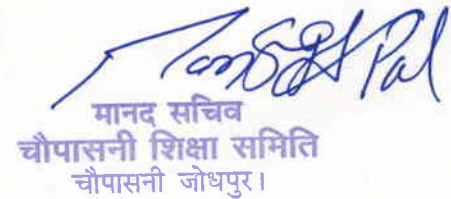 मानद सचिव
चौपासनी शिक्षा समिति
चौपासनी जोधपुर।